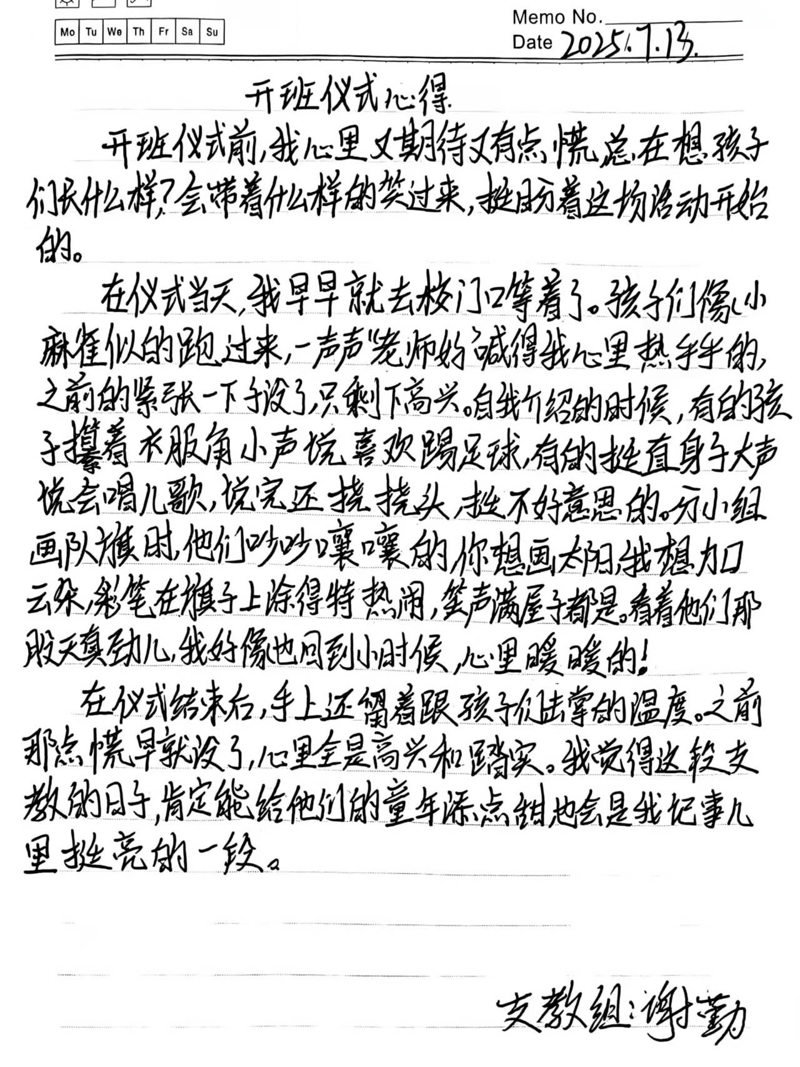 Memo No.
Mo Tu We Th Fr Sa Su
Date 2025.7.13.
开班仪式心得
开班仪式前,我心里又期待又有点慌,总在想孩子
们长什么样?会带着什么样的笑过来,挺盼着这场活动开始
的。
在仪式当天,我早早就去校门口等着了。孩子们像小
麻雀似的跑过来,一声声“老师好”喊得我心里热乎乎的,
之前的紧张一下子没了,只剩下高兴。自我介绍的时候,有的孩
子攥着衣服角小声说喜欢踢足球,有的挺直身子大声
说会唱儿歌,说完还挠挠头,挺不好意思的。分小组
画队旗时,他们吵吵嚷嚷的,你想画太阳,我想加
云朵,彩笔在旗子上涂得特热闹,笑声满屋子都是。看着他们那
股天真劲儿,我好像也回到小时候,心里暖暖的!
在仪式结束后,手上还留着跟孩子们击掌的温度。之前
那点慌早就没了,心里全是高兴和踏实。我觉得这段支
教的日子,肯定能给他们的童年添点甜,也会是我记事儿
里挺亮的一段。
支教组:谢勤